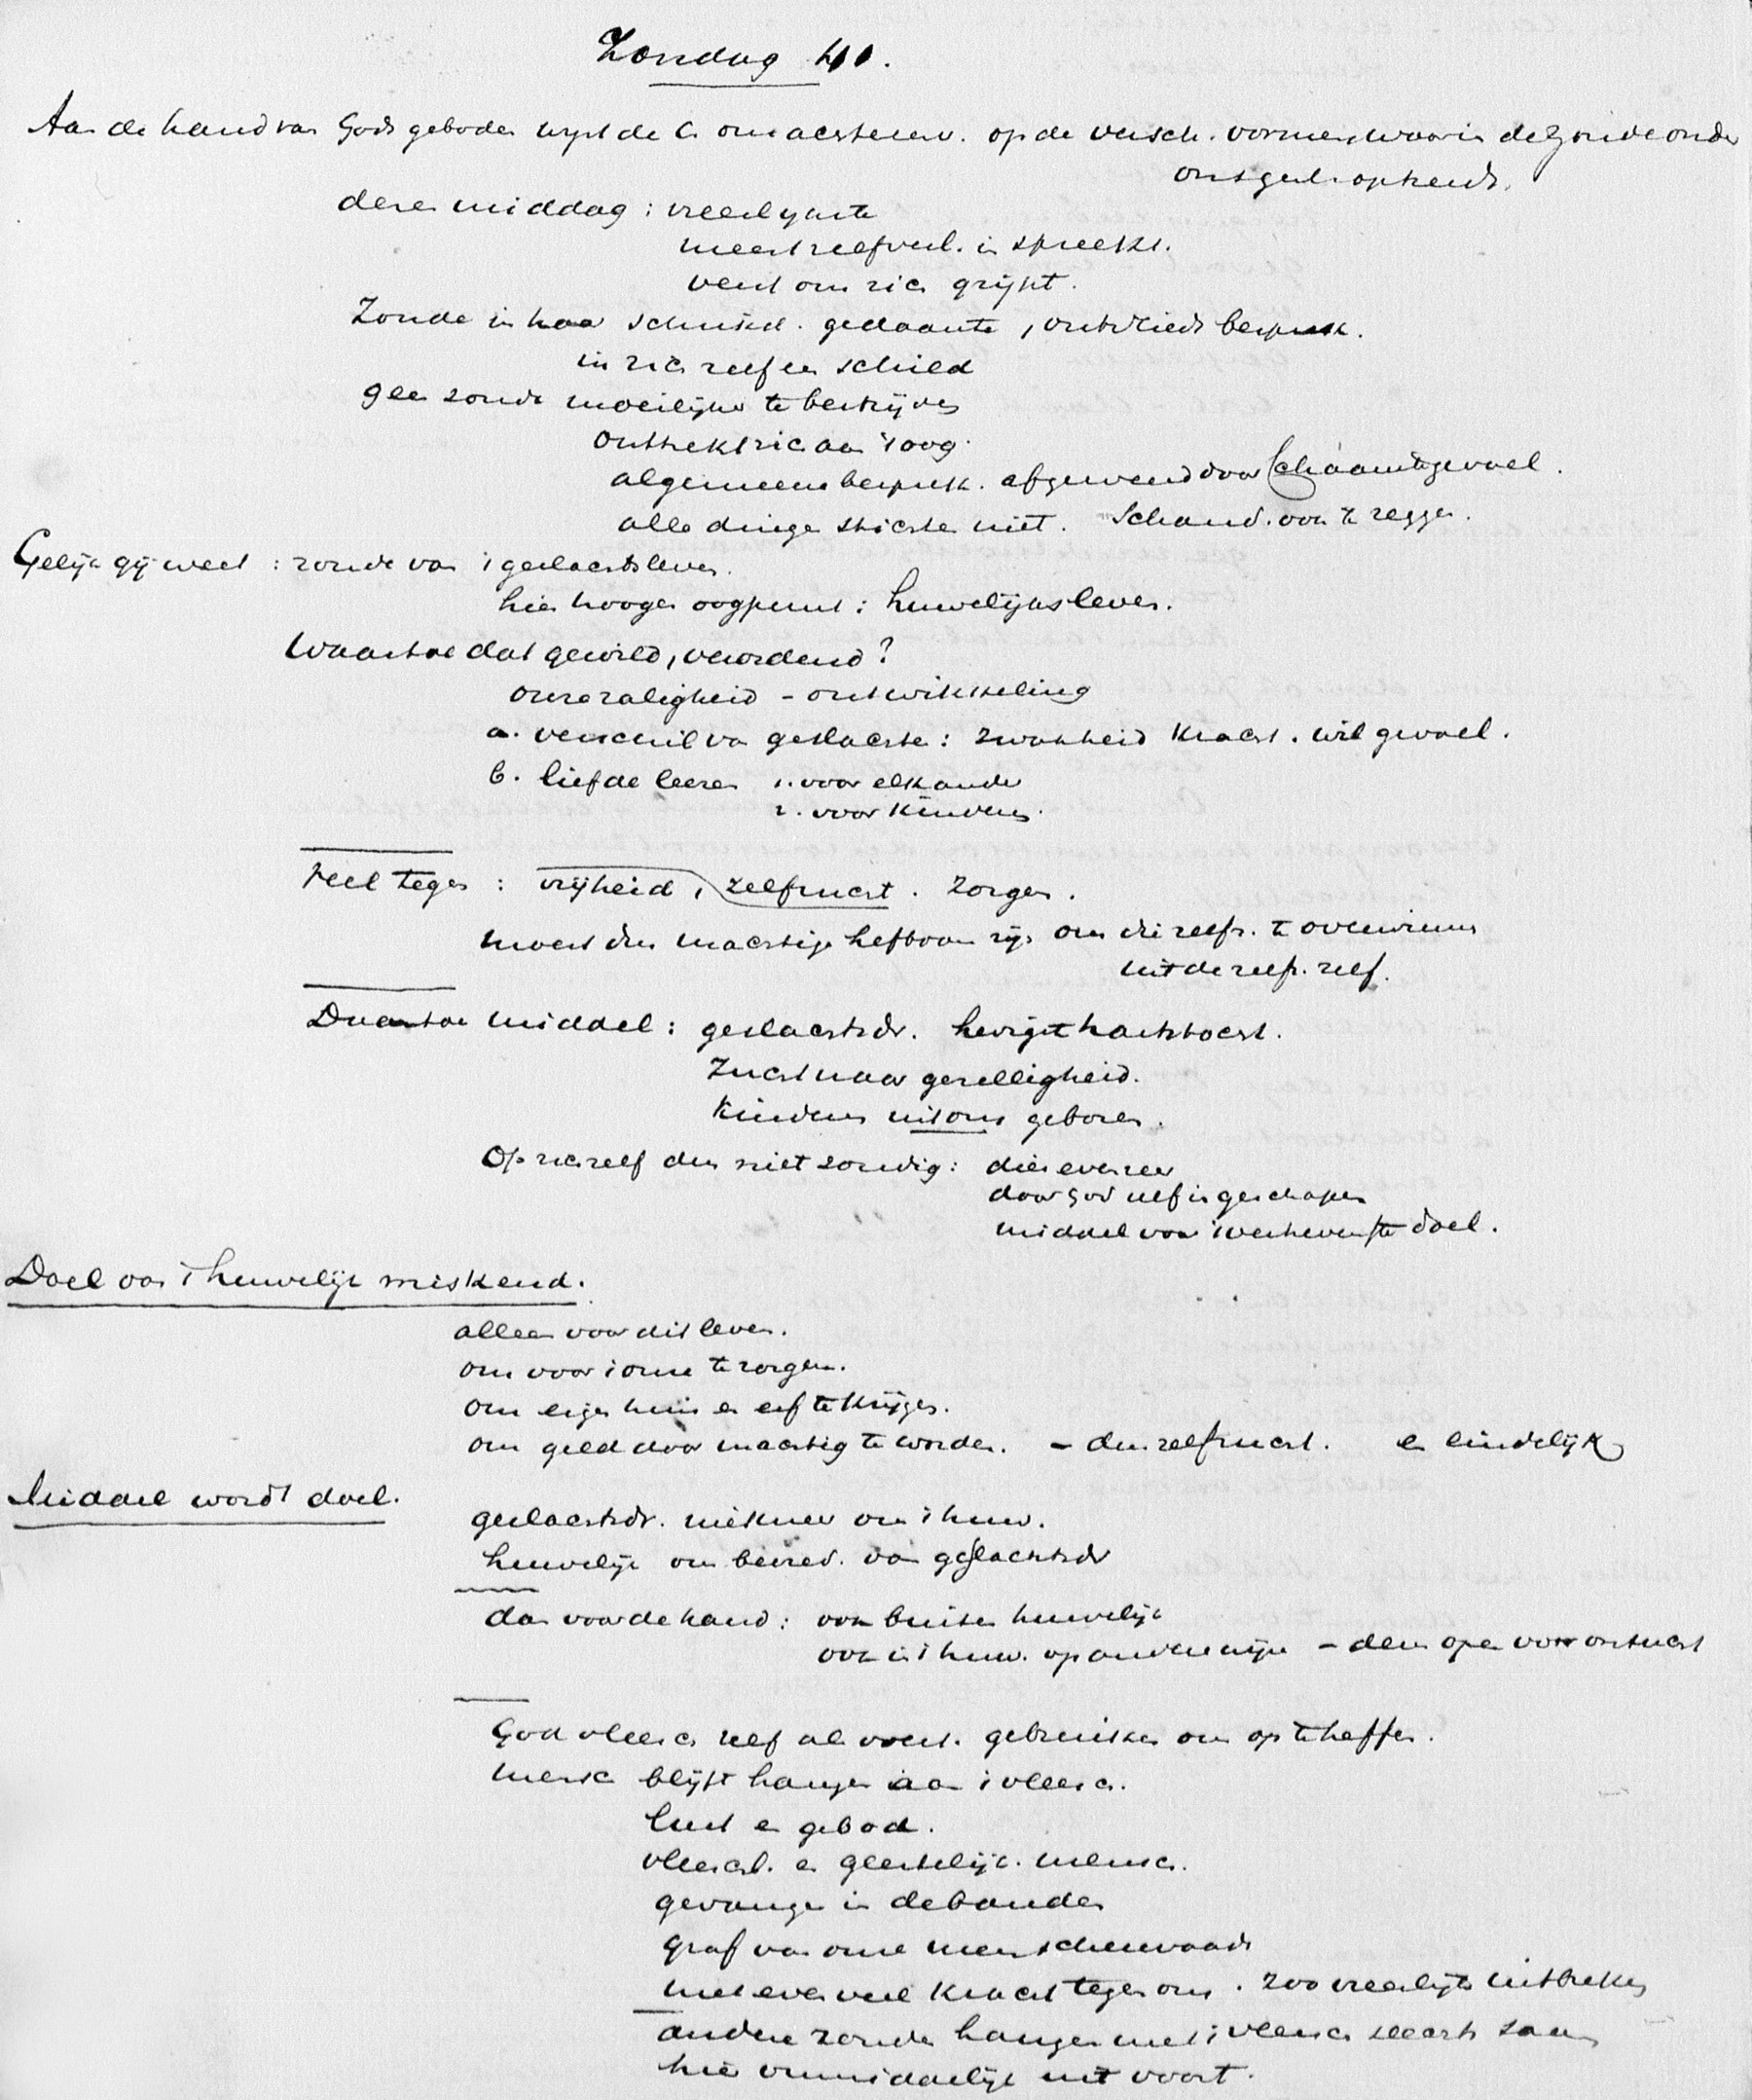 Zondag 41.
Aan de hand van Gods geboden wijst de C. ons achtereenv. op de versch. vormen waarin de zonde onder
ons gesl. optreedt.
dezen middag: vreeslijkste
meest zelfverl. in spreekt.
verst om zich grijpt.
Zonde in haar schuld. gedaante, ontvliedt besprek.
in zich zelf een schild
geen zonde moeilijker te bestrijden
onttrekt zich aan 't oog.
algemeene besprek. afgewend door schaamtegevoel.
alle dingen stichten niet. Schand. ook te zeggen.
Gelijk gij weet: zonde van 't geslachtsleven.
hier hooger oogpunt: huwelijksleven.
Waartoe dat gewild, verordend?
onze zaligheid - ontwikkeling
a. verschil van geslachten: zwakheid kracht. wil gevoel.
b. liefde leeren 1. voor elkander
2. voor kinderen.
Veel tegen: vrijheid, zelfzucht. Zorgen.
moest dus machtige hefboom zijn om die zelfz. te overwinnen
uit de zelfz. zelf.
Daartoe middel: geslachtsdr. hevigst hartstocht.
Zucht naar gezelligheid.
Kinderen uit ons geboren.
Op zichzelf dus niet zondig: dier evenzeer
door God zelf is geschapen
middel voor 't verhevenste doel.
Doel van 't huwelijk miskend.
alleen voor dit leven.
om voor 't onze te zorgen.
om eigen huis en erf te krijgen.
om geld door machtig te worden. - dus zelfzucht. en eindelijk
Middel wordt doel.
geslachtsdr. niet meer om 't huw.
huwelijk om bevred. van geslachtsdr
dan voor de hand: ook buiten huwelijk
ook in 't huw. op andere wijze - deur open voor ontucht
God vleesch zelf als voert. gebruiken om op te heffen.
Mensch blijft hangen aan 't vleesch.
lust en gebod.
vleeschl. en geestelijk. mensch.
gevangen in de banden
graf van onze menschenwaarde
met evenveel kracht tegen ons. Zoo vreeslijke uitbreken
andere zonden hangen met 't vleesch slechts samen
hier onmiddellijk uit voort.